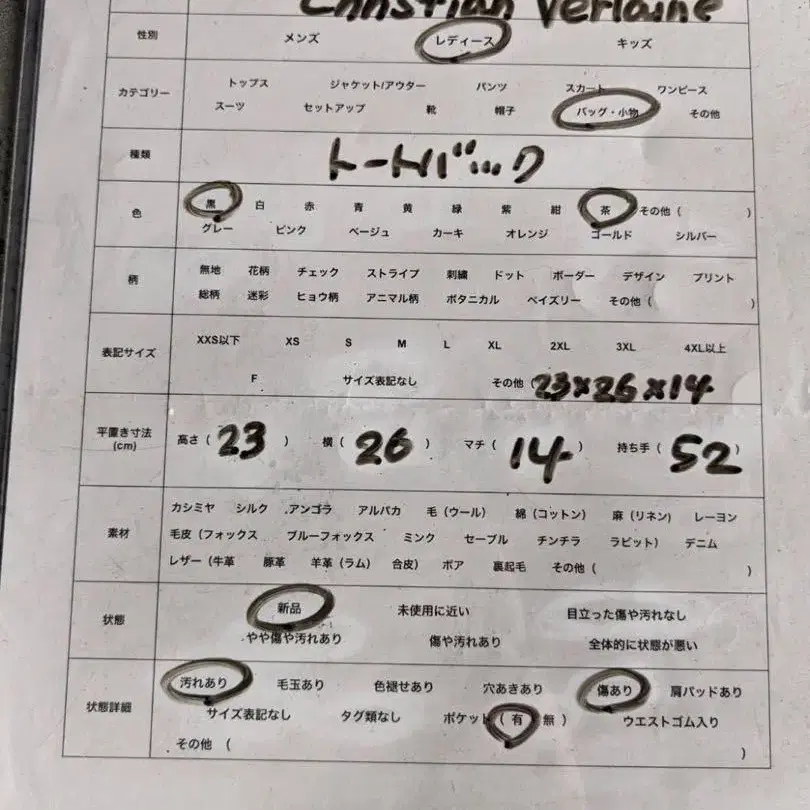 Christian Verlaine
性別 メンズ レディース キッズ
カテゴリー トップス ジャケット/アウター パンツ スカート ワンピース
スーツ セットアップ 靴 帽子 バッグ・小物 その他
種類 トートバック
色 黒 白 赤 青 黄 緑 紫 紺 茶 その他 ( )
グレー ピンク ベージュ カーキ オレンジ ゴールド シルバー
柄 無地 花柄 チェック ストライプ 刺繍 ドット ボーダー デザイン プリント
総柄 迷彩 ヒョウ柄 アニマル柄 ボタニカル ペイズリー その他 ( )
表記サイズ XXS以下 XS S M L XL 2XL 3XL 4XL以上
F サイズ表記なし その他 ( 23×26×14
平置き寸法
(cm)
高さ ( 23 ) 横 ( 26 ) マチ ( 14 ) 持ち手 ( 52 )
素材 カシミヤ シルク アンゴラ アルパカ 毛 (ウール) 綿 (コットン) 麻 (リネン) レーヨン
毛皮 (フォックス ブルーフォックス ミンク セーブル チンチラ ラビット) デニム
レザー (牛革 豚革 羊革 (ラム) 合皮) ボア 裏起毛 その他 ( )
状態 新品 未使用に近い 目立った傷や汚れなし
やや傷や汚れあり 傷や汚れあり 全体的に状態が悪い
状態詳細 汚れあり 毛玉あり 色褪せあり 穴あきあり 傷あり 肩パッドあり
サイズ表記なし タグ類なし ポケット ( 有 無 ) ウエストゴム入り
その他 ( )